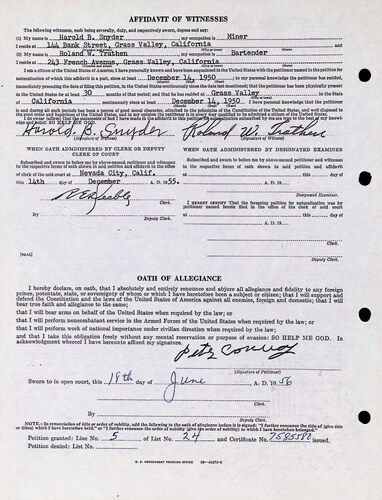 AFFIDAVIT OF WITNESSES
The following witnesses, each being severally, duly, and respectively sworn, depose and say:
(1) My name is Harold B. Snyder my occupation is Miner
I reside at 144 Bank Street, Grass Valley, California and
(2) My name is Roland W. Trathen my occupation is Bartender
I reside at 243 French Avenue, Grass Valley, California
I am a citizen of the United States of America; I have personally known and have been acquainted in the United States with the petitioner named in the petition for
naturalization of which this affidavit is a part, since at least December 14, 1950 ; to my personal knowledge the petitioner has resided,
immediately preceding the date of filing this petition, in the United States continuously since the date last mentioned; that the petitioner has been physically present
in the United States for at least 30 months of that period; and that he has resided at Grass Valley in the State of
California continuously since at least December 14, 1950 ; I have personal knowledge that the petitioner
is and during all such periods has been a person of good moral character, attached to the principles of the Constitution of the United States, and well disposed to the
good order and happiness of the United States, and in my opinion the petitioner is in every way qualified to be admitted a citizen of the United States.
I do swear (affirm) that the statements of fact I have made in the affidavit to this petition for naturalization subscribed by me are true to the best of my knowledge
and belief: SO HELP ME GOD.
Harold B. Snyder Roland W. Trathen
(Signature of Witness) (Signature of Witness)
WHEN OATH ADMINISTERED BY CLERK OR DEPUTY
CLERK OF COURT
Subscribed and sworn to before me by above-named petitioner and witnesses
in the respective forms of oath shown in said petition and affidavit in the office
of the clerk of said court at Nevada City, Calif.
this 14th day of December A. D. 1955.
Clerk.
By
Deputy Clerk.
[SEAL]
WHEN OATH ADMINISTERED BY DESIGNATED EXAMINER
Subscribed and sworn to before me by above-named petitioner and witnesses
in the respective forms of oath shown in said petition and affidavit
at
this day of A. D. 19
Designated Examiner.
I HEREBY CERTIFY That the foregoing petition for naturalization was by
petitioner named herein filed in the office of the clerk of said court
Clerk.
By
Deputy Clerk.
OATH OF ALLEGIANCE
I hereby declare, on oath, that I absolutely and entirely renounce and abjure all allegiance and fidelity to any foreign
prince, potentate, state, or sovereignty of whom or which I have heretofore been a subject or citizen; that I will support and
defend the Constitution and the laws of the United States of America against all enemies, foreign and domestic; that I will
bear true faith and allegiance to the same;
that I will bear arms on behalf of the United States when required by the law; or
that I will perform noncombatant service in the Armed Forces of the United States when required by the law; or
that I will perform work of national importance under civilian direction when required by the law;
and that I take this obligation freely without any mental reservation or purpose of evasion: SO HELP ME GOD. In
acknowledgment whereof I have hereunto affixed my signature.
(Signature of Petitioner)
Sworn to in open court, this 18th day of June A. D. 1956
Clerk.
By
Deputy Clerk.
NOTE.—In renunciation of title or order of nobility, add the following to the oath of allegiance before it is signed: "I further renounce the title of (give title
or titles) which I have heretofore held," or "I further renounce the order of nobility (give the order of nobility) to which I have heretofore belonged."
Petition granted: Line No. 5 of List No. 24 and Certificate No. 7585580 issued.
Petition denied: List No.
U. S. GOVERNMENT PRINTING OFFICE